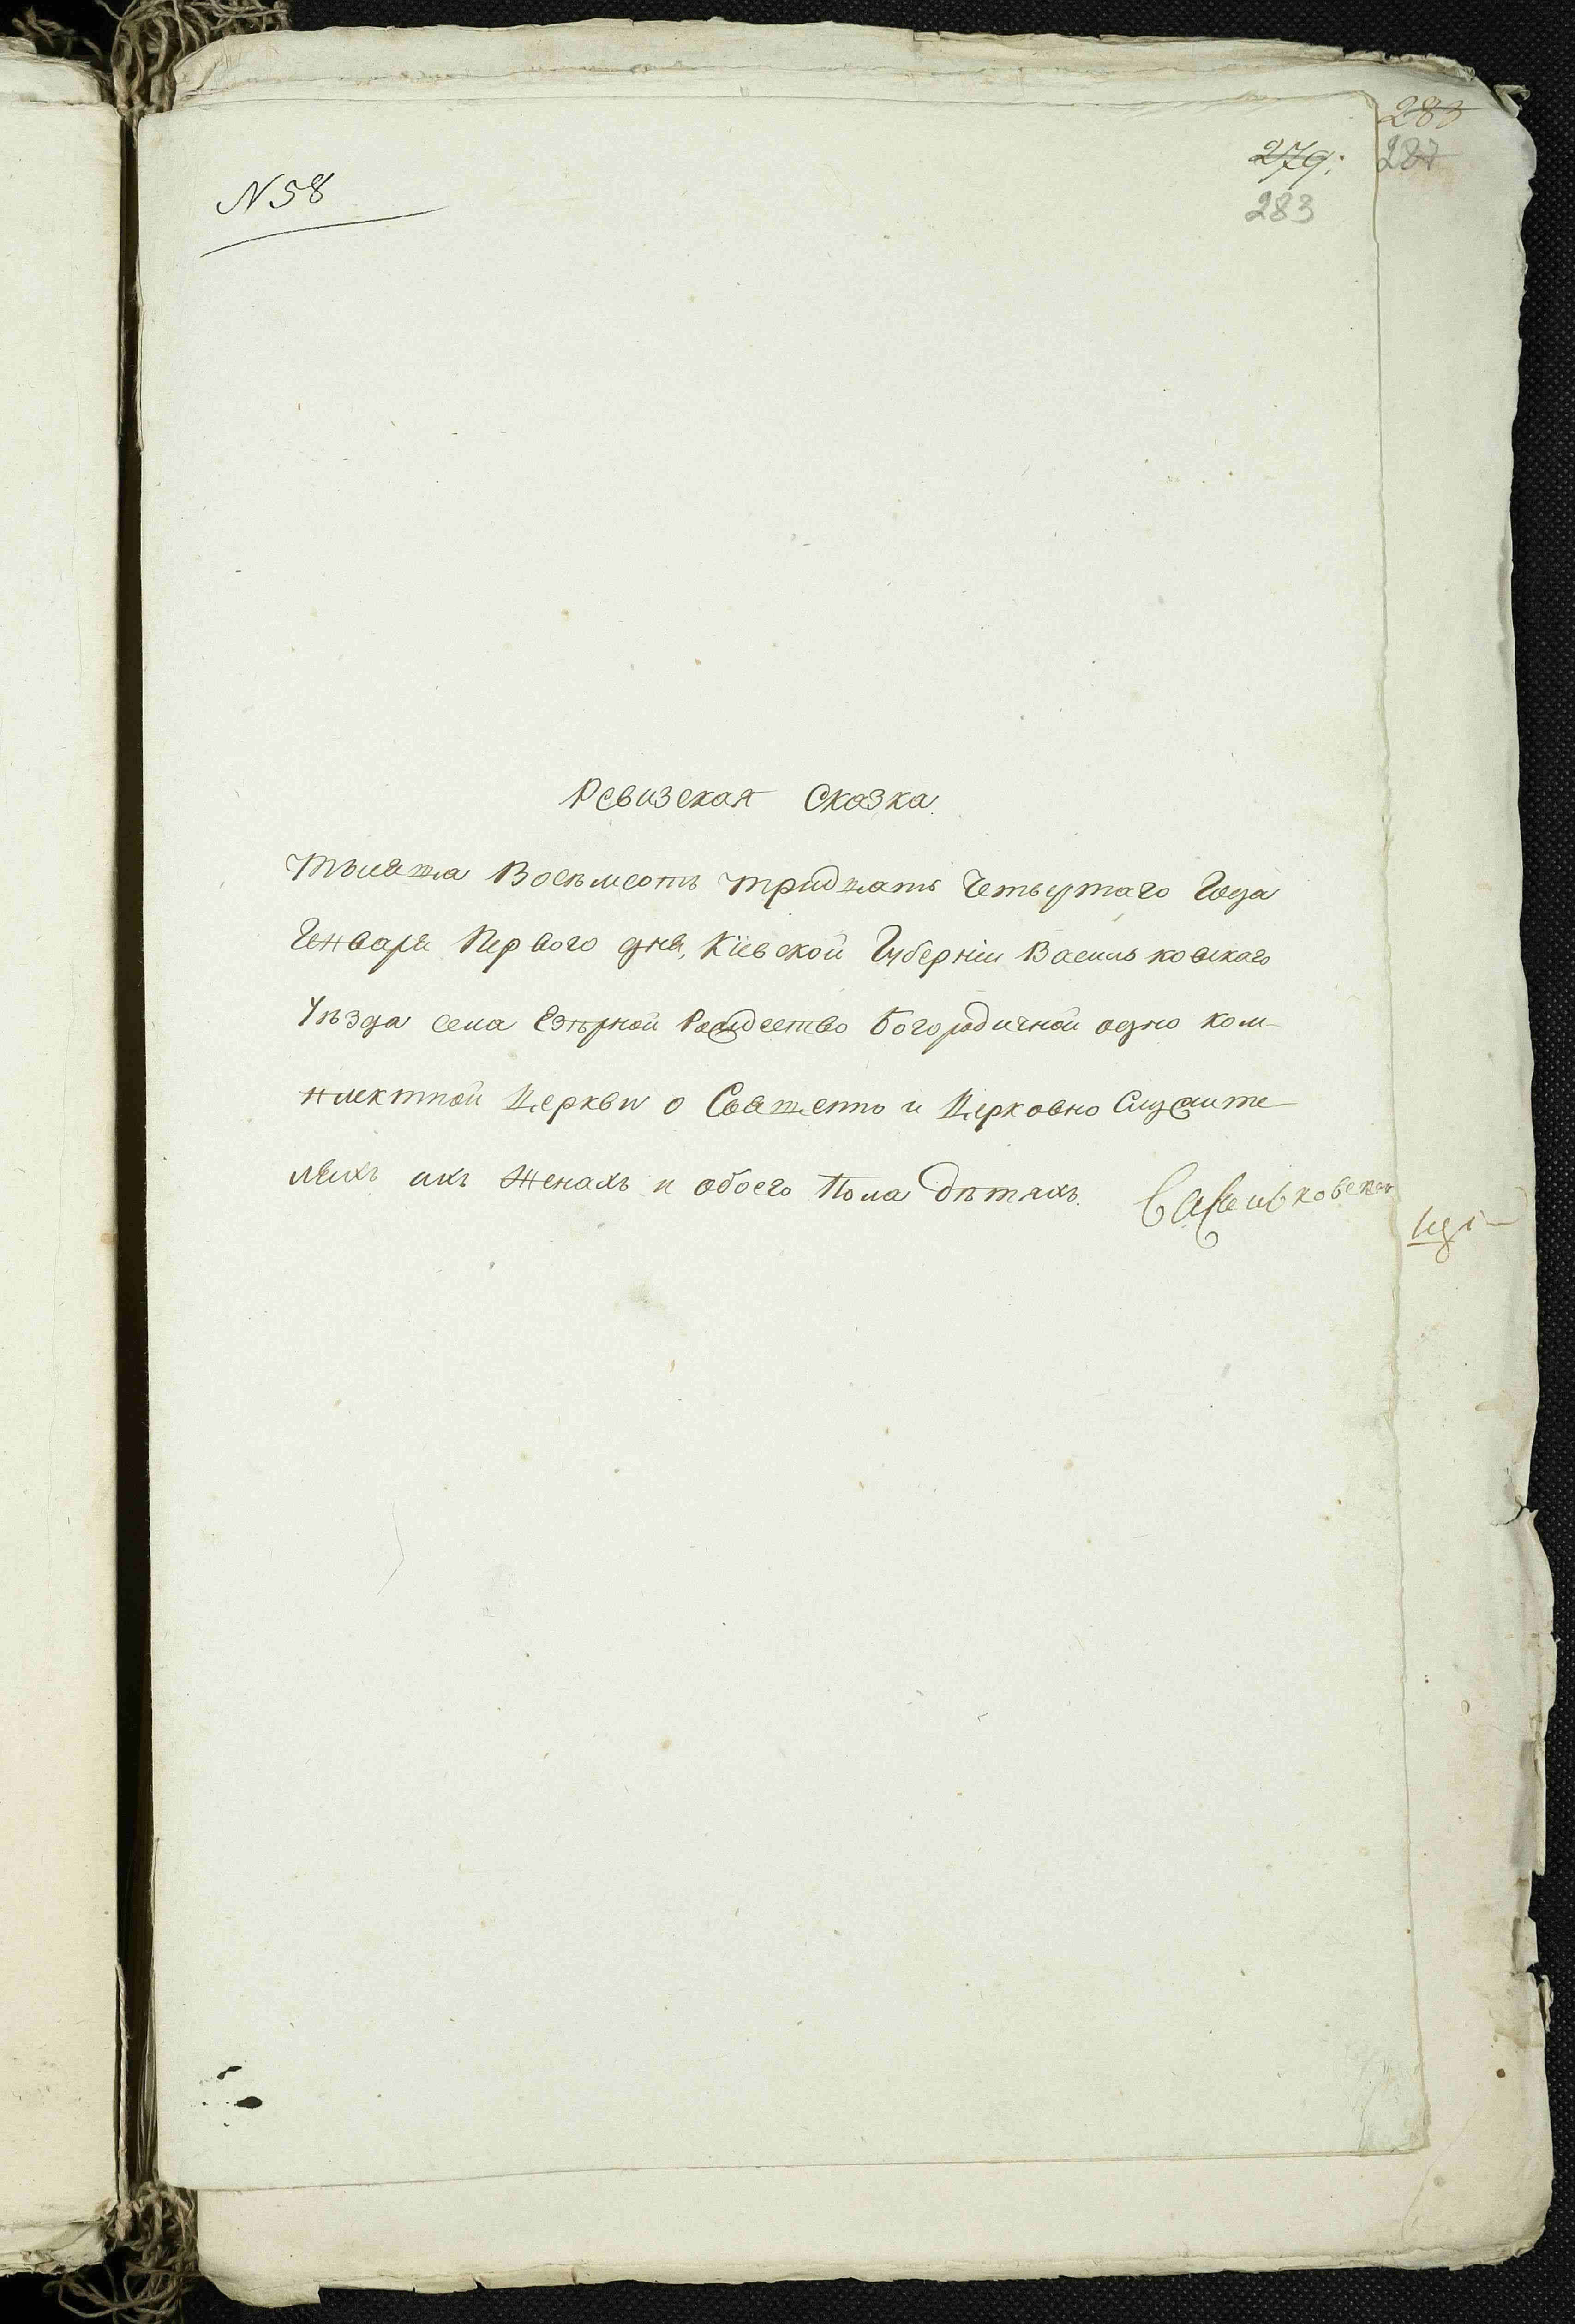 283
279.
287
N 58
283
Ревизская Сказка.
тысяща Восемьсотъ тридцать Четвертаго Года
Генваря Первого дня, Кіевской Губерніи Васильковскаго
Уѣзда села Езѣрной Рождество Богородичной одно ком-
плектной Церкви о Священно и Церковно Служите-
ляхъ ихъ Женахъ и обоего Пола дѣтяхъ.